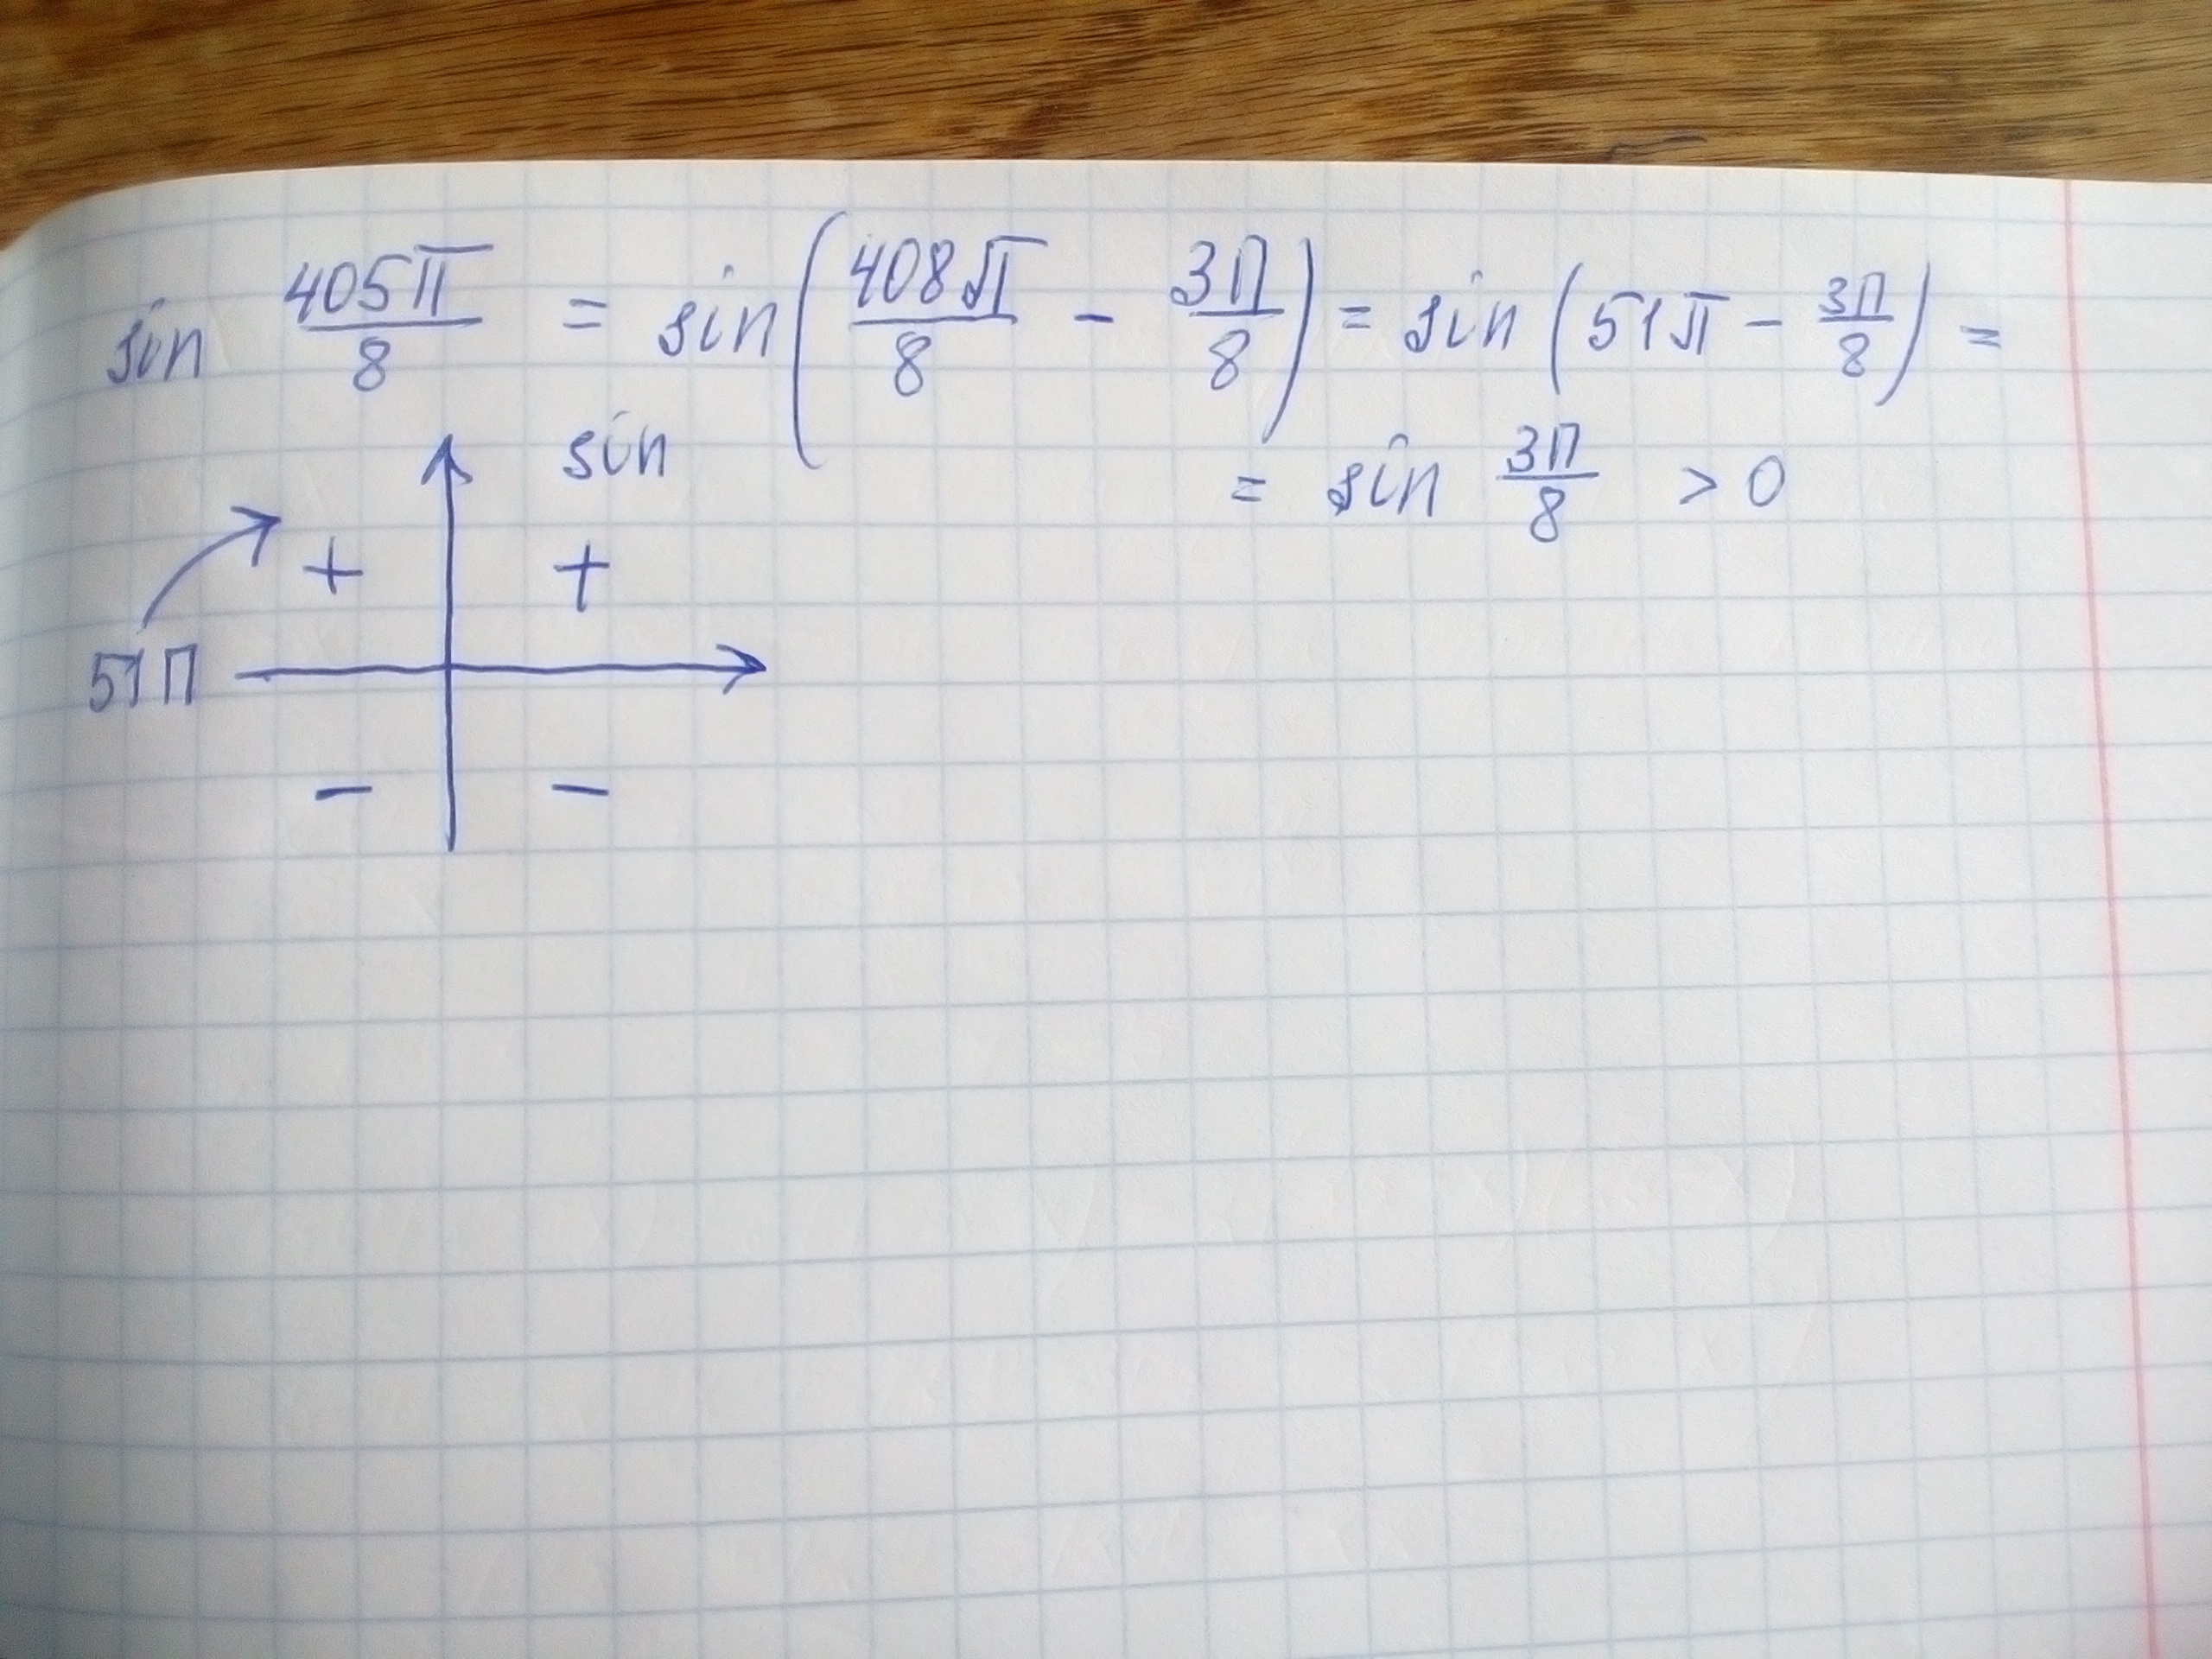 sin 405π/8 = sin(408π/8 - 3П/8) = sin(51π - 3П/8) =
= sin 3П/8 > 0
sin
+ +
51П
- -